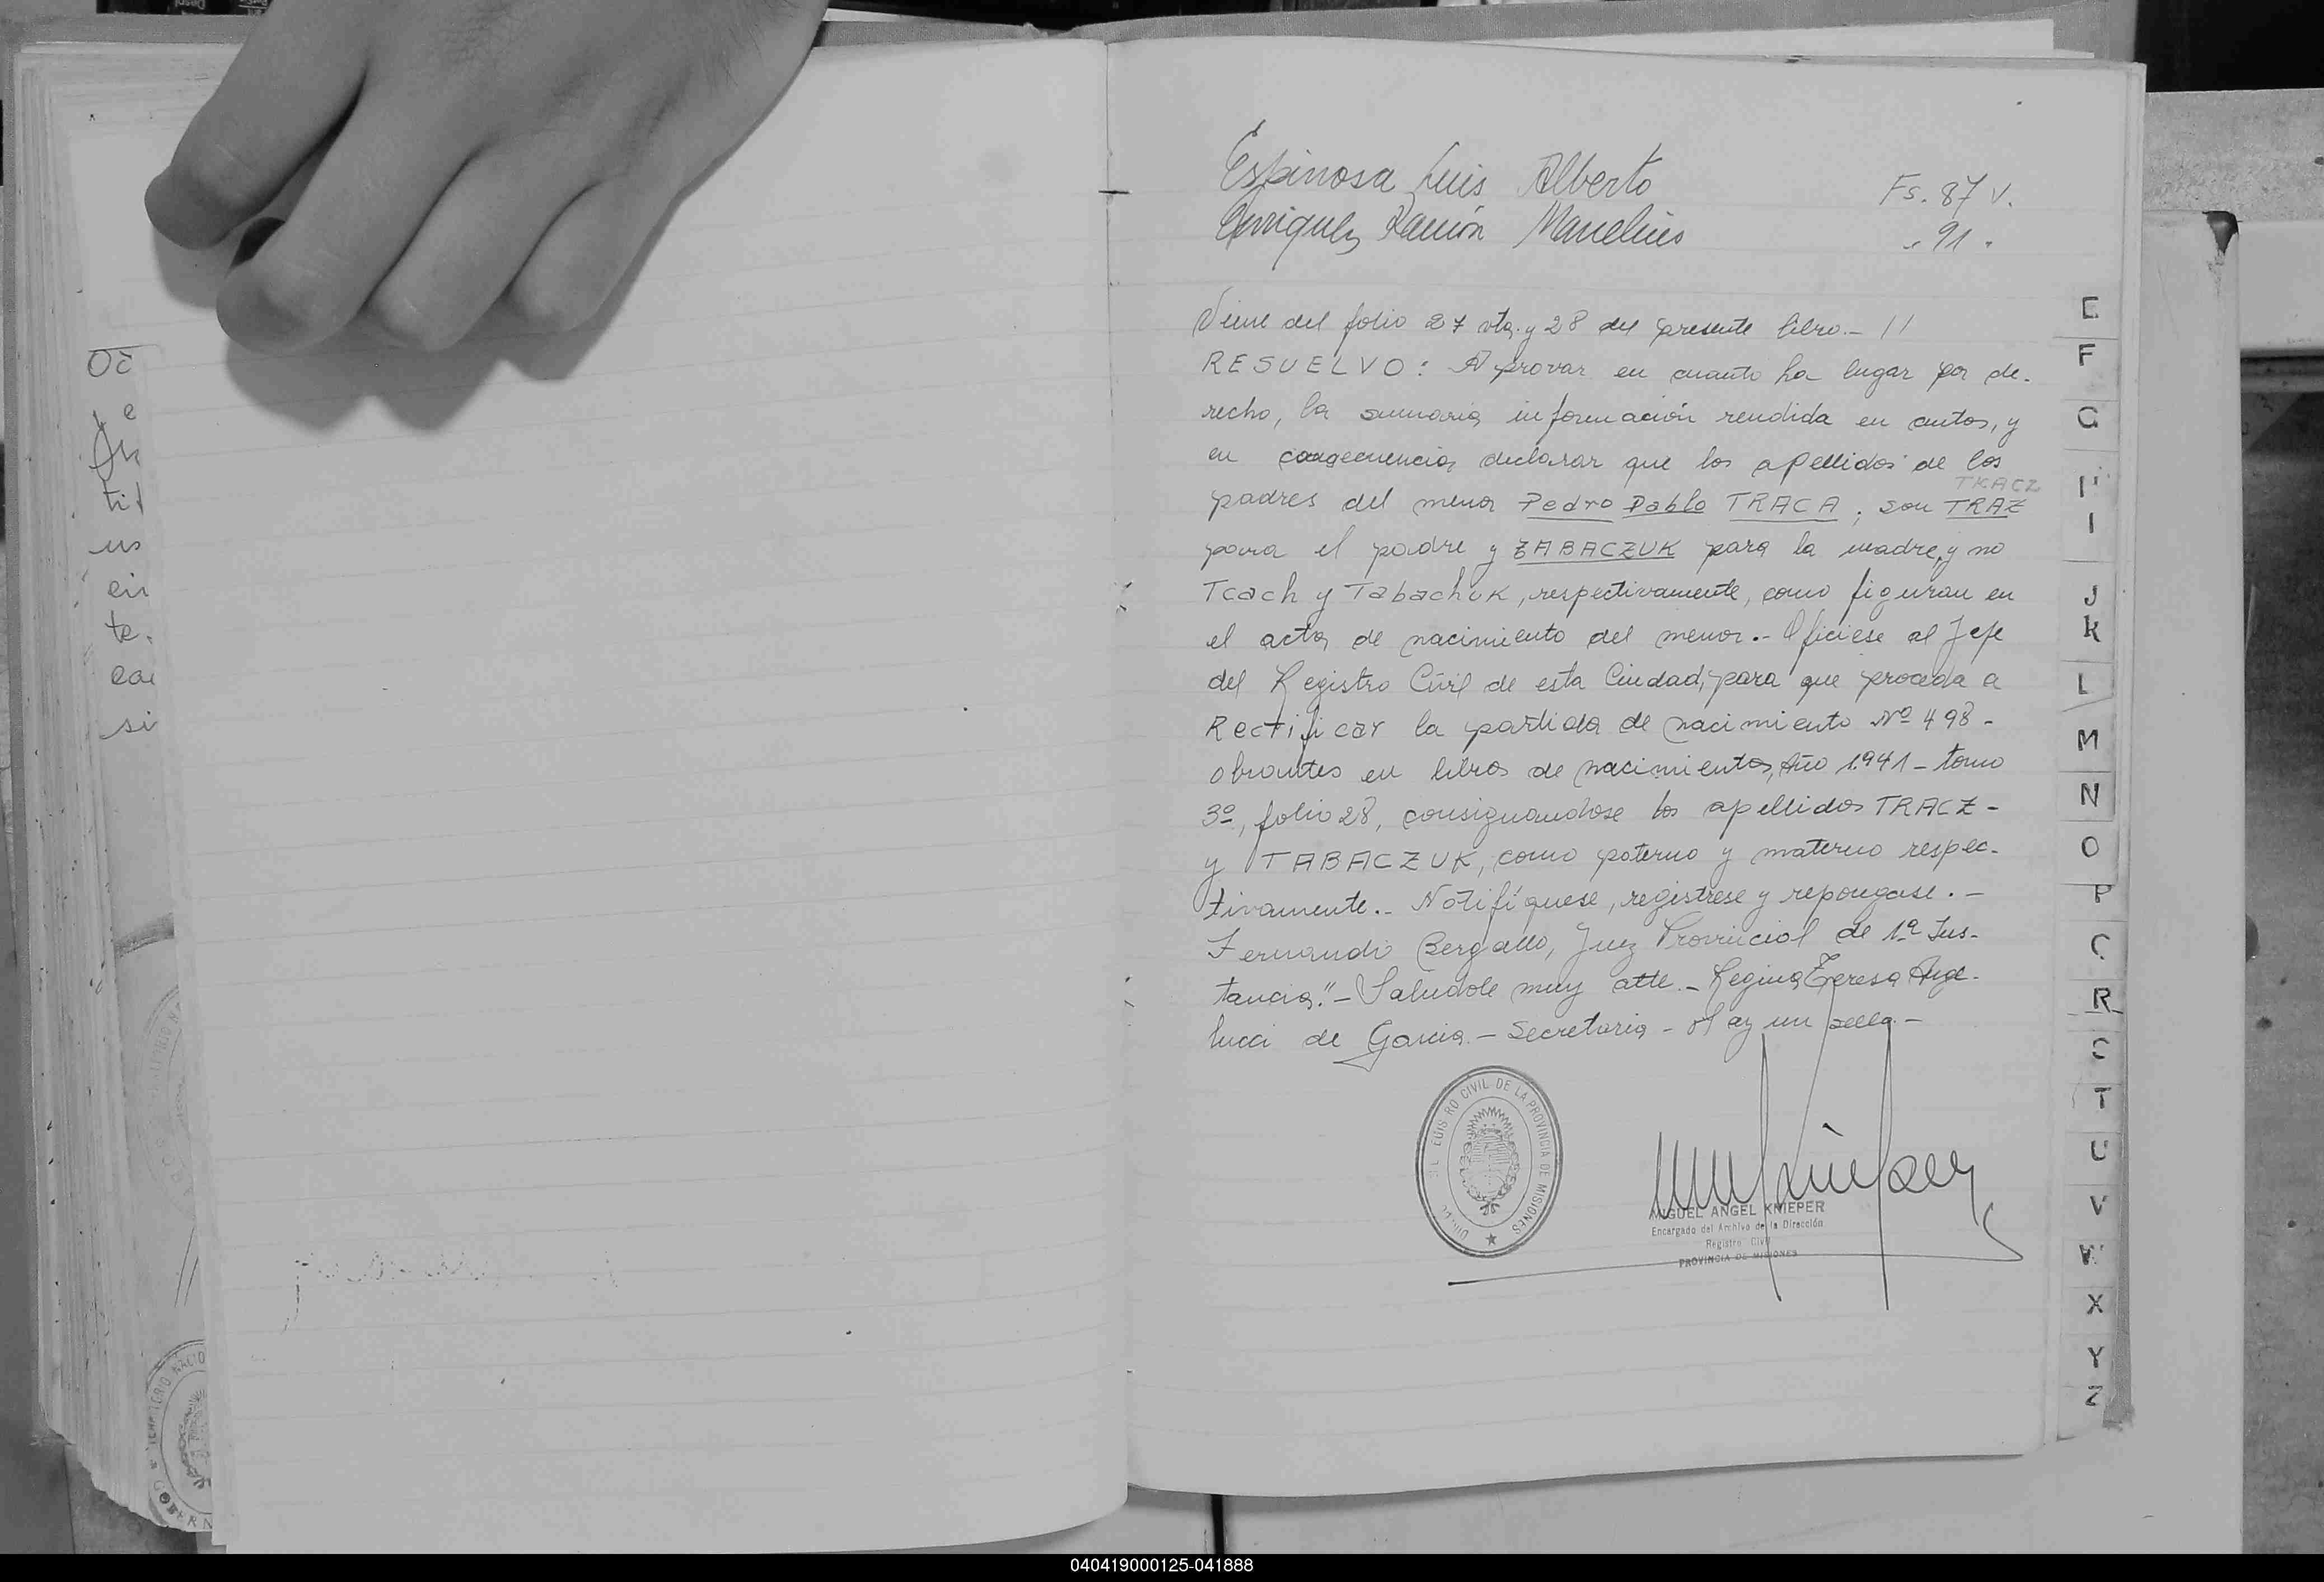 Oc
e
tit
us
ein
te.
cai
si
Espinosa Luis Alberto Fs. 87 V.
Enriquez Ramón Marcelino " 91 "
Viene del folio 27 vta. y 28 del presente libro.- //
RESUELVO: Aprovar en cuanto ha lugar por de-
recho, la sumaria información rendida en autos, y
en consecuencia, declarar que los apellidos de los
TKACZ
padres del menor Pedro Pablo TRACA; son TRAZ
para el padre y ZABACZUK para la madre, y no
Tcach y Tabachuk, respectivamente, como figuran en
el acta de nacimiento del menor.- Ofíciese al Jefe
del Registro Civil de esta Ciudad, para que proceda a
Rectificar la partida de nacimiento Nº 498-
obrantes en libros de nacimientos, Año 1941 - tomo
3º, folio 28, consignandose los apellidos TRACZ-
y TABACZUK, como paterno y materno respec-
tivamente.- Notifíquese, regístrese y repongase.-
Fernando Bergallo, Juez Provincial de 1ª Ins-
tancia."- Salúdole muy atte.- Regina Teresa Ange-
lucci de Garcia.- Secretaria - Hay un sello.-
REGISTRO CIVIL DE LA PROVINCIA DE MISIONES
MIGUEL ANGEL KNIEPER
Encargado del Archivo de la Dirección
Registro Civil
PROVINCIA DE MISIONES
E
F
G
H
I
J
K
L
M
N
O
P
R
T
U
V
W
X
Y
Z
040419000125-041888